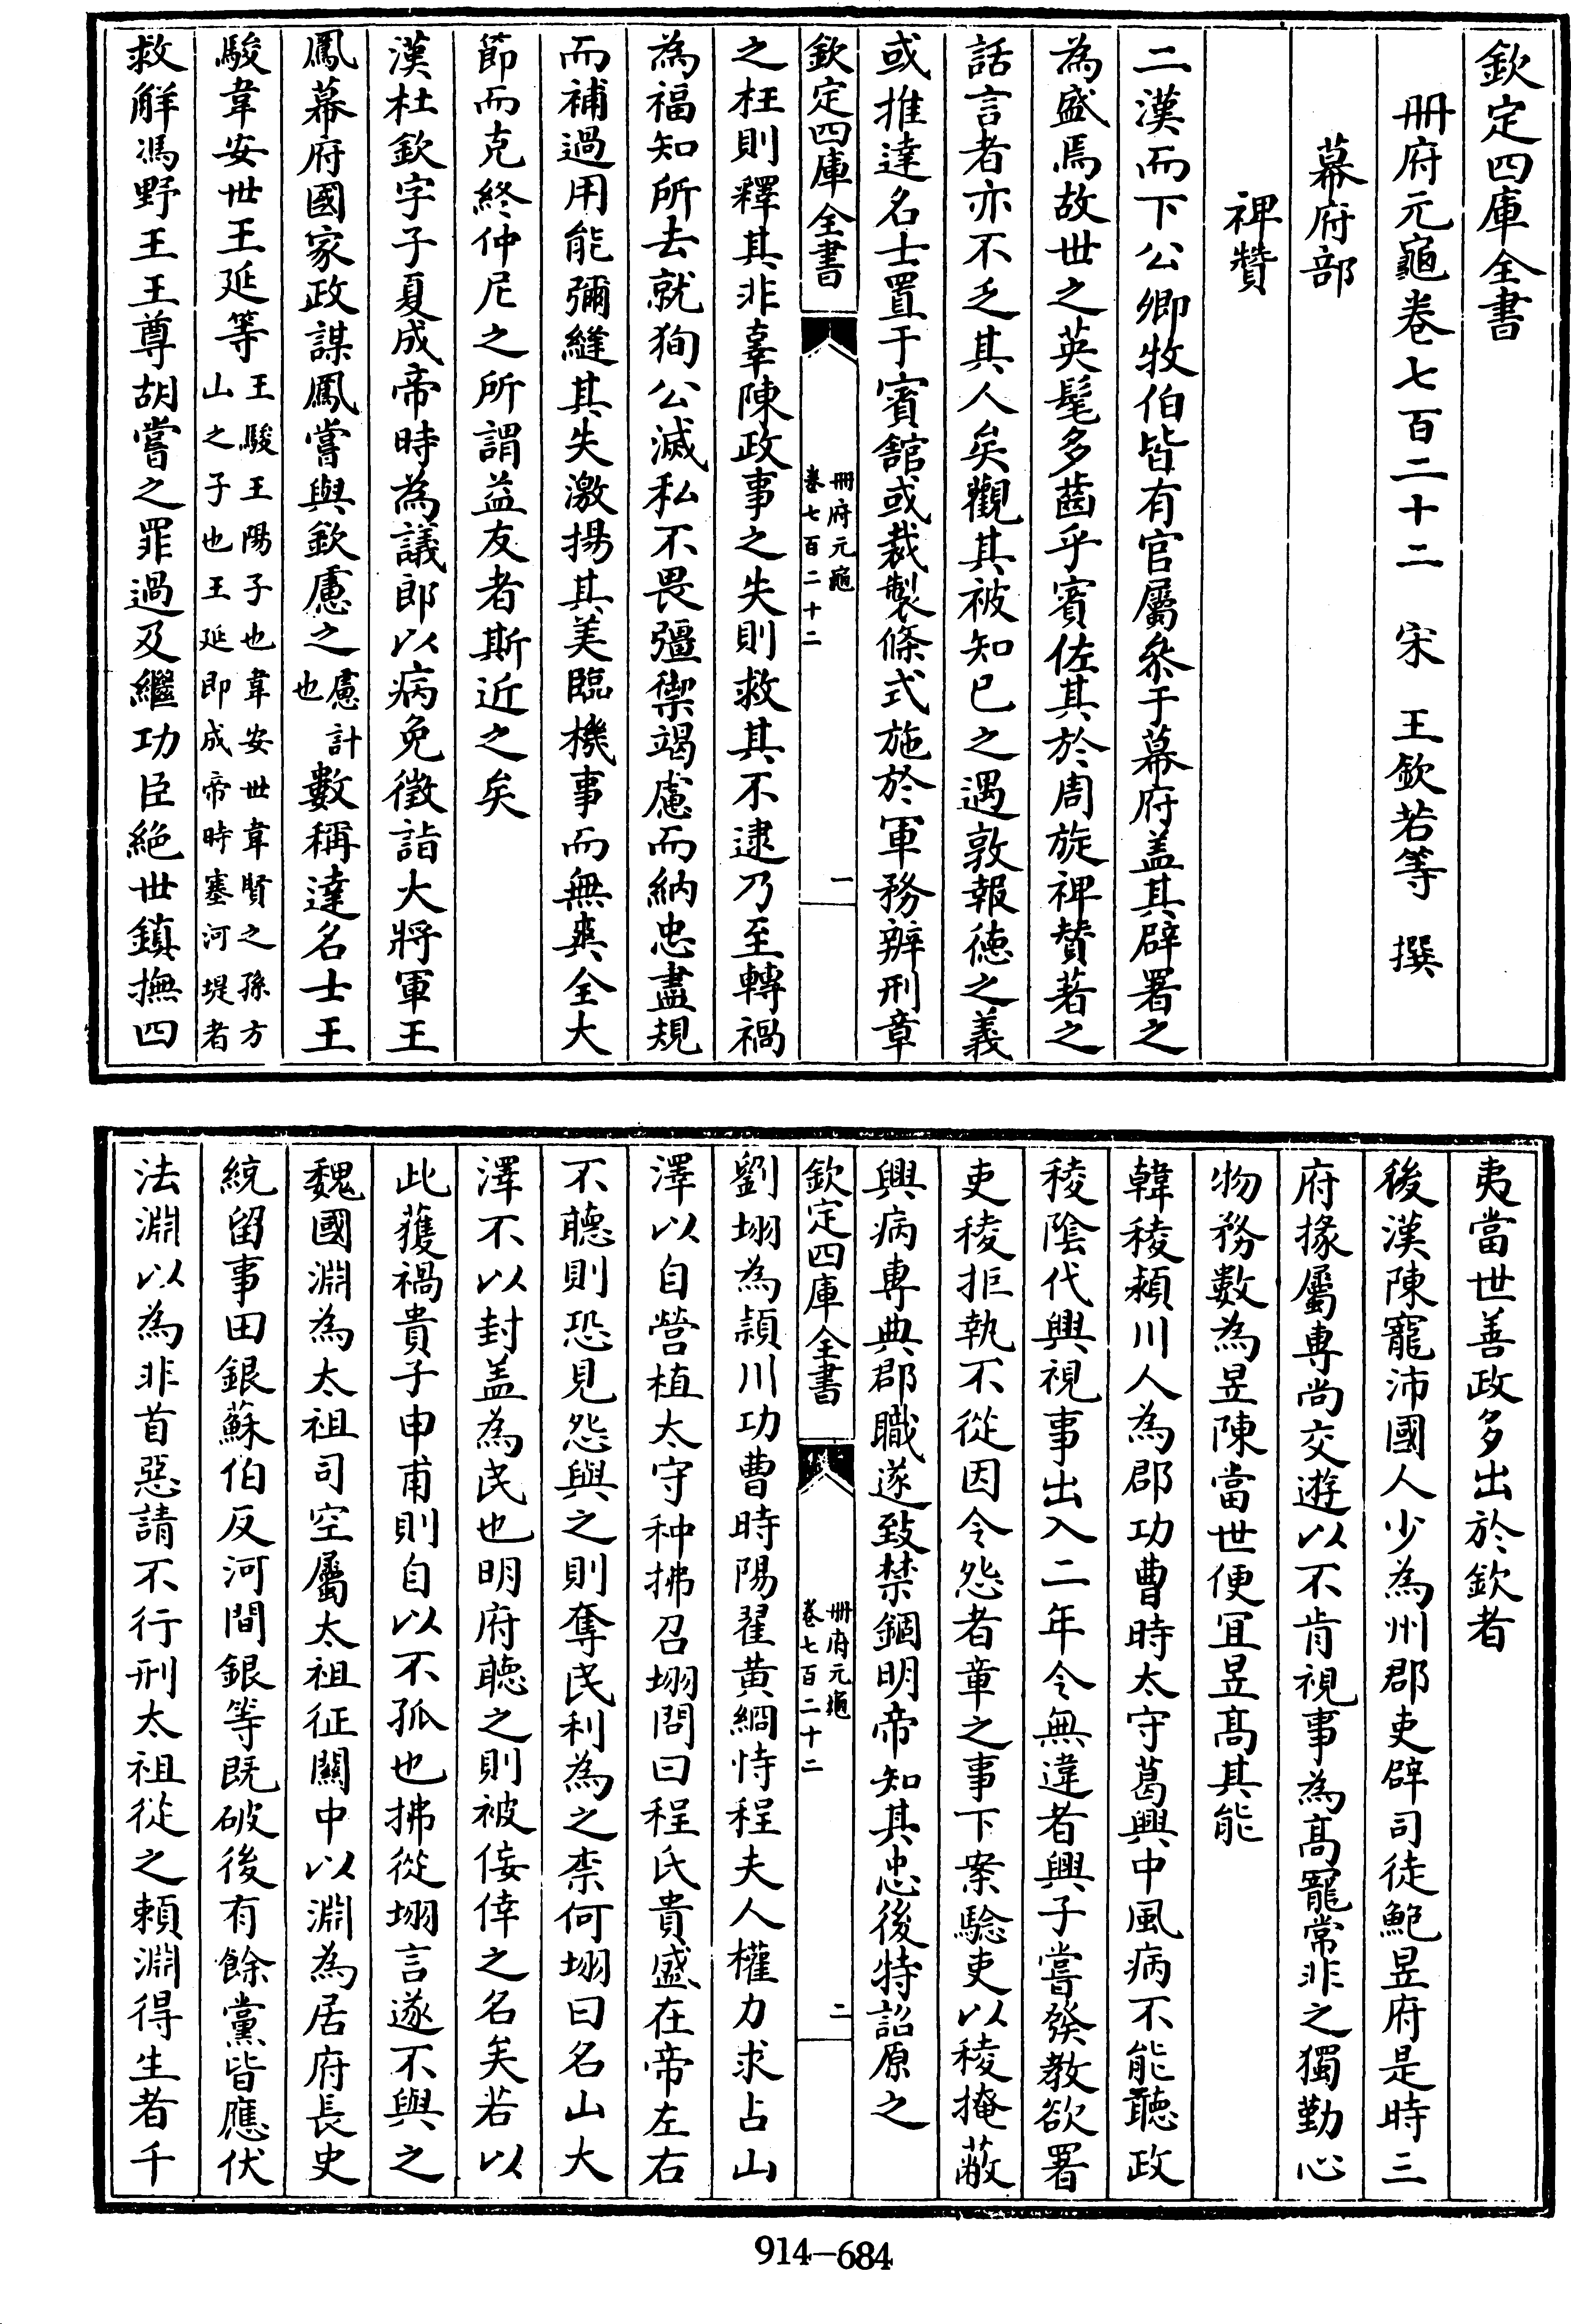 欽定四庫全書
冊府元龜卷七百二十二　宋　王欽若等　撰
幕府部
裨贊
二漢而下公卿牧伯皆有官屬叅于幕府盖其辟署之
為盛焉故世之英髦多萃乎賓佐其於周旋裨賛著之
話言者亦不乏其人矣觀其被知已之遇敦報德之義
或推達名士置于賓舘或裁製條式施於軍務辨刑章
欽定四庫全書
冊府元龜
卷七百二十二
一
之枉則釋其非辜陳政事之失則救其不逮乃至轉禍
為福知所去就狥公滅私不畏彊禦竭慮而納忠盡規
而補過用能彌縫其失激揚其美臨機事而無爽全大
節而克終仲尼之所謂益友者斯近之矣
漢杜欽字子夏成帝時為議郎以病免徵詣大將軍王
鳳幕府國家政謀鳳嘗與欽慮之慮計也數稱達名士王
駿韋安世王延等王駿王陽子也韋安世韋賢之孫方山之子也王延即成帝時塞河堤者
救解馮野王王尊胡嘗之罪過及繼功臣絶世鎮撫四
夷當世善政多出於欽者
後漢陳寵沛國人少為州郡吏辟司徒鮑昱府是時三
府掾屬專尚交遊以不肯視事為髙寵常非之獨勤心
物務數為昱陳當世便冝昱髙其能
韓稜潁川人為郡功曹時太守葛興中風病不能聽政
稜陰代興視事出入二年令無違者興子嘗發教欲署
吏稜拒執不從因令怨者章之事下案驗吏以稜掩蔽
興病専典郡職遂致禁錮明帝知其忠後特詔原之
欽定四庫全書
冊府元龜
卷七百二十二
二
劉翊為潁川功曹時陽翟黄綱恃程夫人權力求占山
澤以自營植太守种拂召翊問曰程氏貴盛在帝左右
不聽則恐見怨與之則奪民利為之柰何翊曰名山大
澤不以封盖為民也明府聽之則被佞倖之名矣若以
此獲禍貴子申甫則自以不孤也拂從翊言遂不與之
魏國淵為太祖司空屬太祖征關中以淵為居府長史
統留事田銀蘇伯反河間銀等既破後有餘黨皆應伏
法淵以為非首惡請不行刑太祖從之賴淵得生者千
914-684